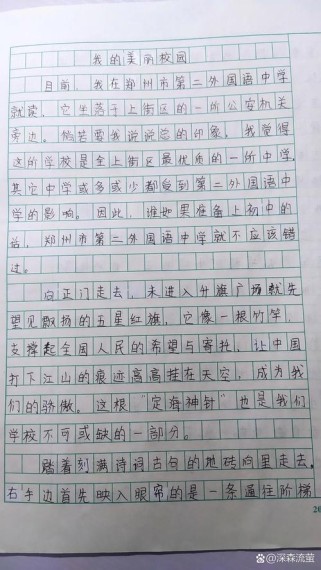 我的美丽校园
目前，我在郑州市第二外国语中学
就读，它坐落于上街区的一所公安机关
旁边。倘若要我说说总的印象。我觉得
这所学校是全上街区最优质的一所中学，
其它中学或多或少都受到第二外国语中
学的影响。因此，谁如果准备上初中的
话，郑州市第二外国语中学就不应该错
过。
向正门走去，未进入升旗广场就先
望见飘扬的五星红旗，它像一根竹竿，
支撑起全国人民的希望与寄托，让中国
打下江山的痕迹高高挂在天空，成为我
们的骄傲。这根“定海神针”也是我们
学校不可或缺的一部分。
踏着刻满诗词古句的地砖向里走去，
右手边首先映入眼帘的是一条通往阶梯
20
@深森流萤